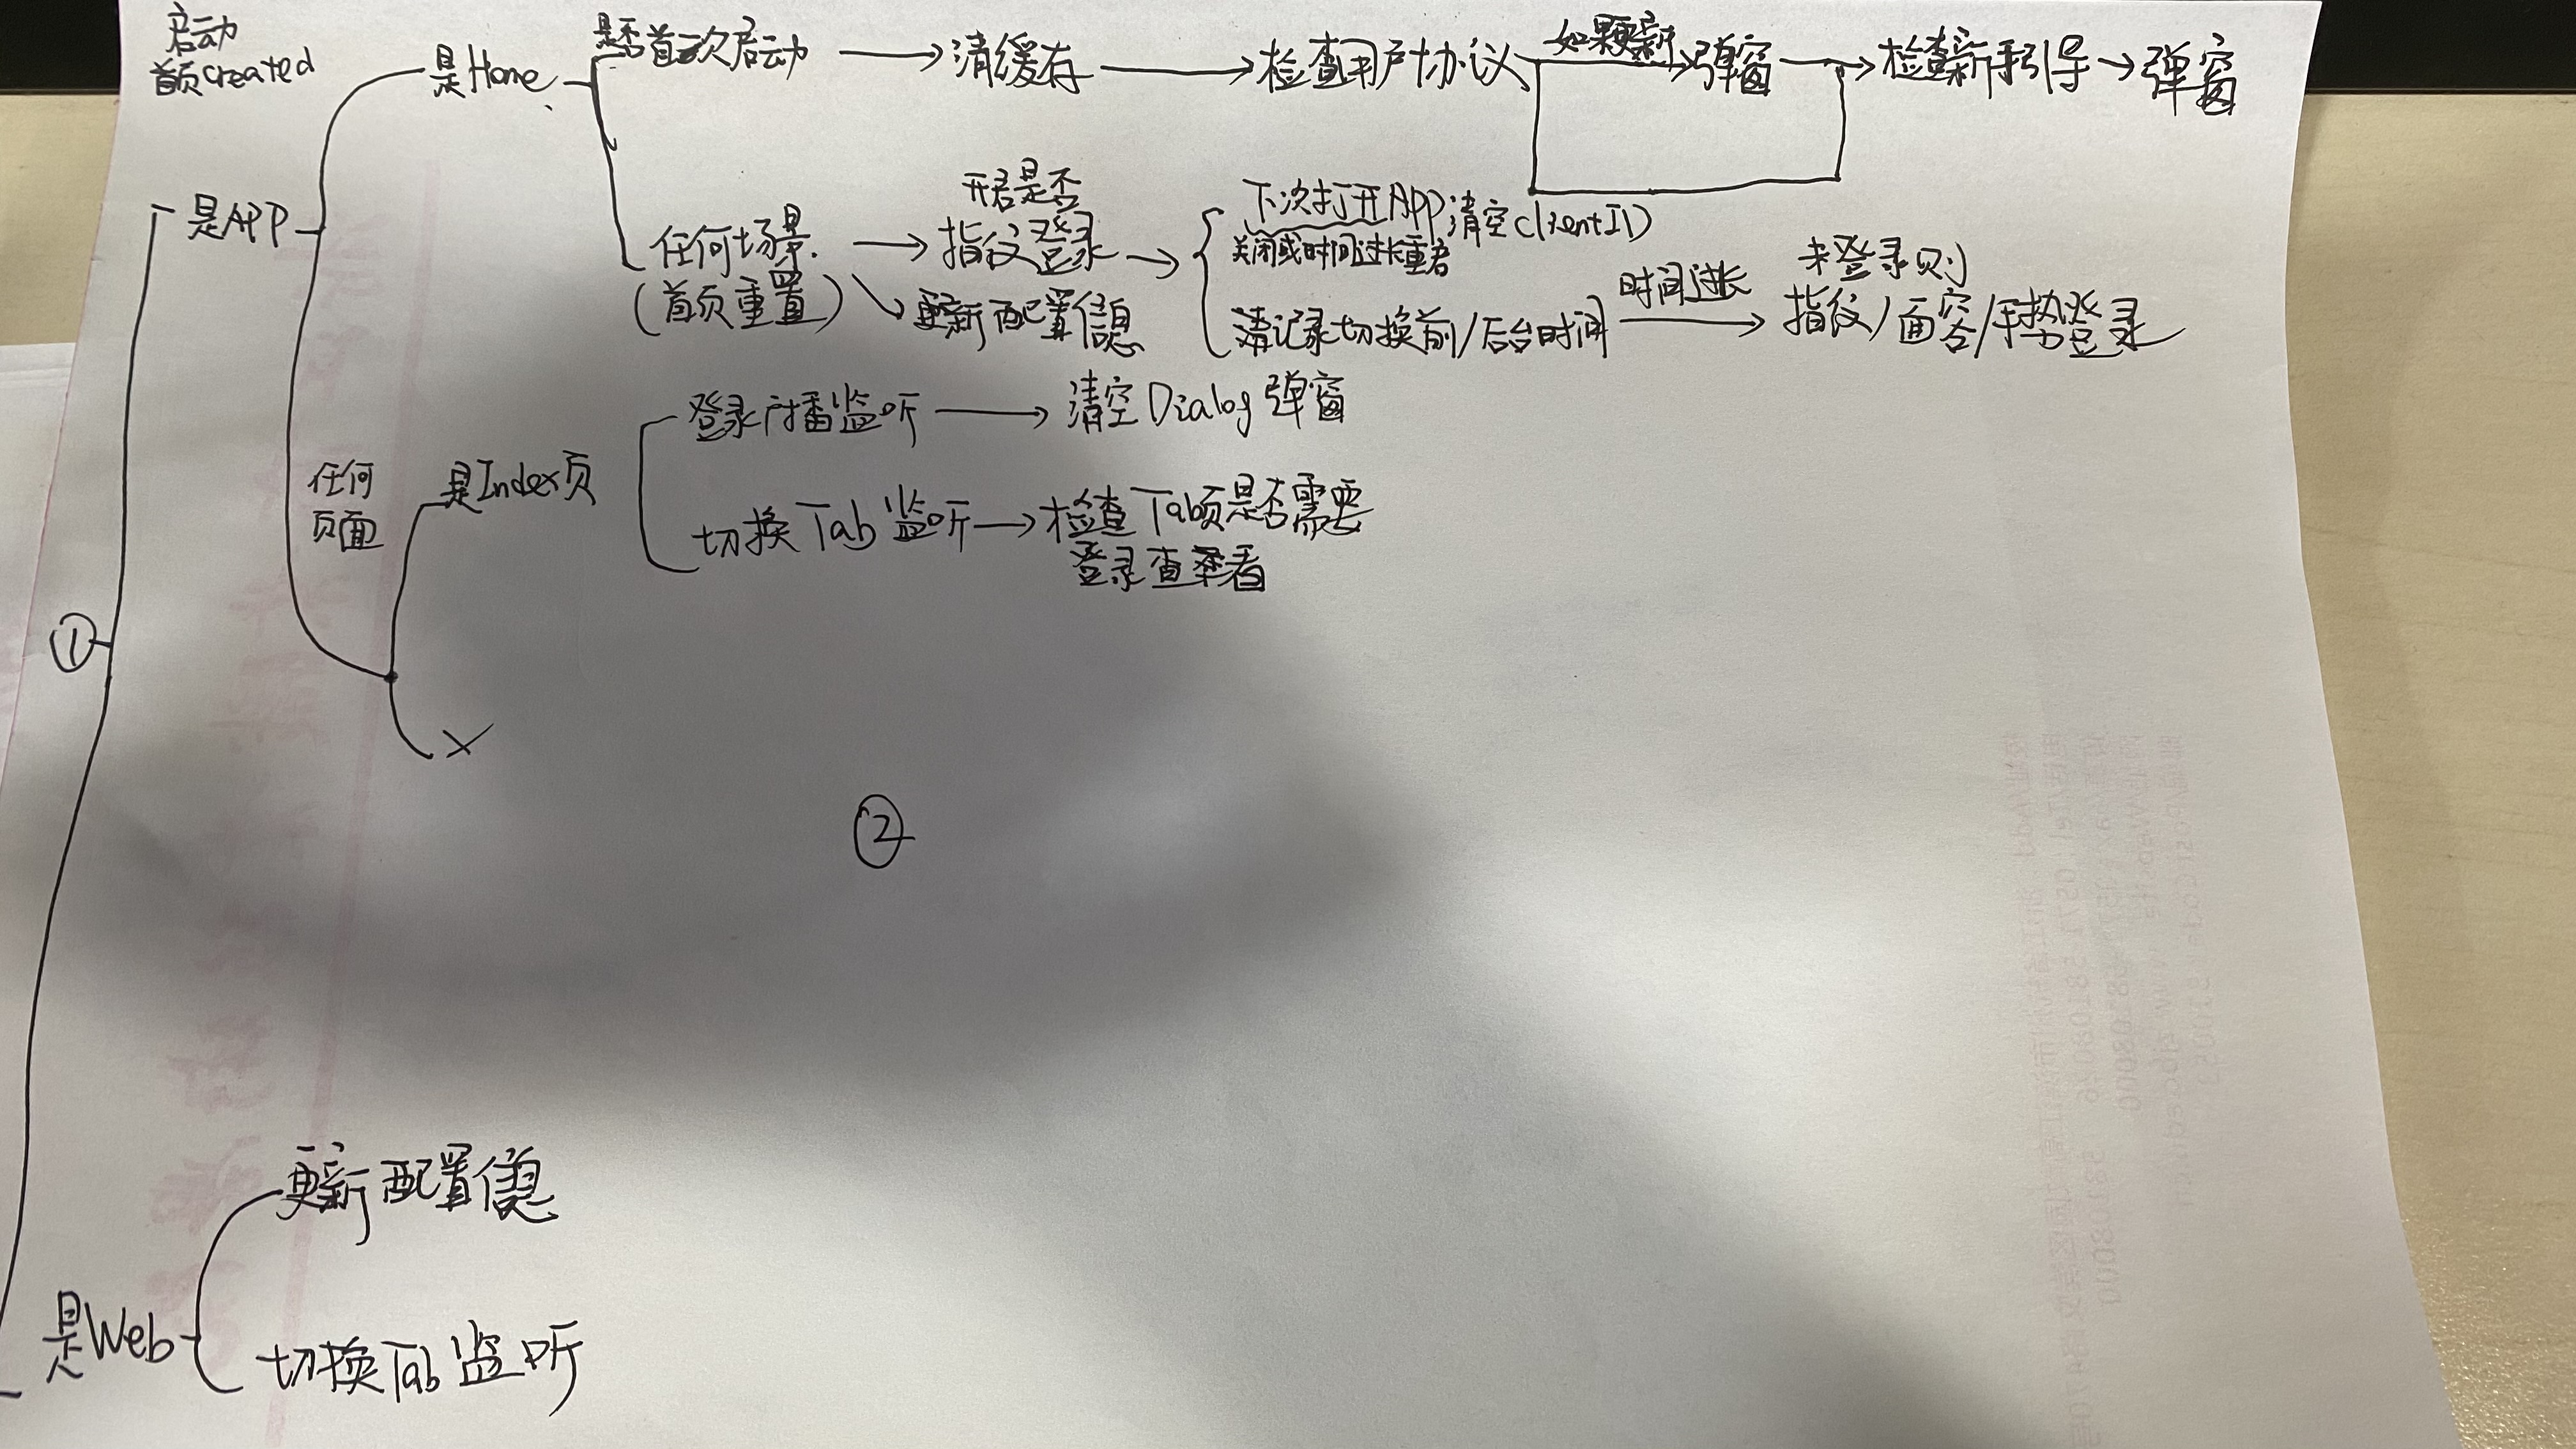 启动
首页created
是Home
是否首次启动
清缓存
检查用户协议
如果更新
弹窗
检查新手引导
弹窗
是APP
任何场景
(首页重置)
开启是否
指纹登录
更新配置信息
下次打开App清空clientID
关闭或时间过长重启
清记录切换前/后台时间
时间过长
未登录则
指纹/面容/手势登录
任何
页面
是Index页
登录广播监听
清空Dialog弹窗
切换Tab监听
检查Tab页是否需要
登录查看
①
×
②
是Web
更新配置信息
切换Tab监听